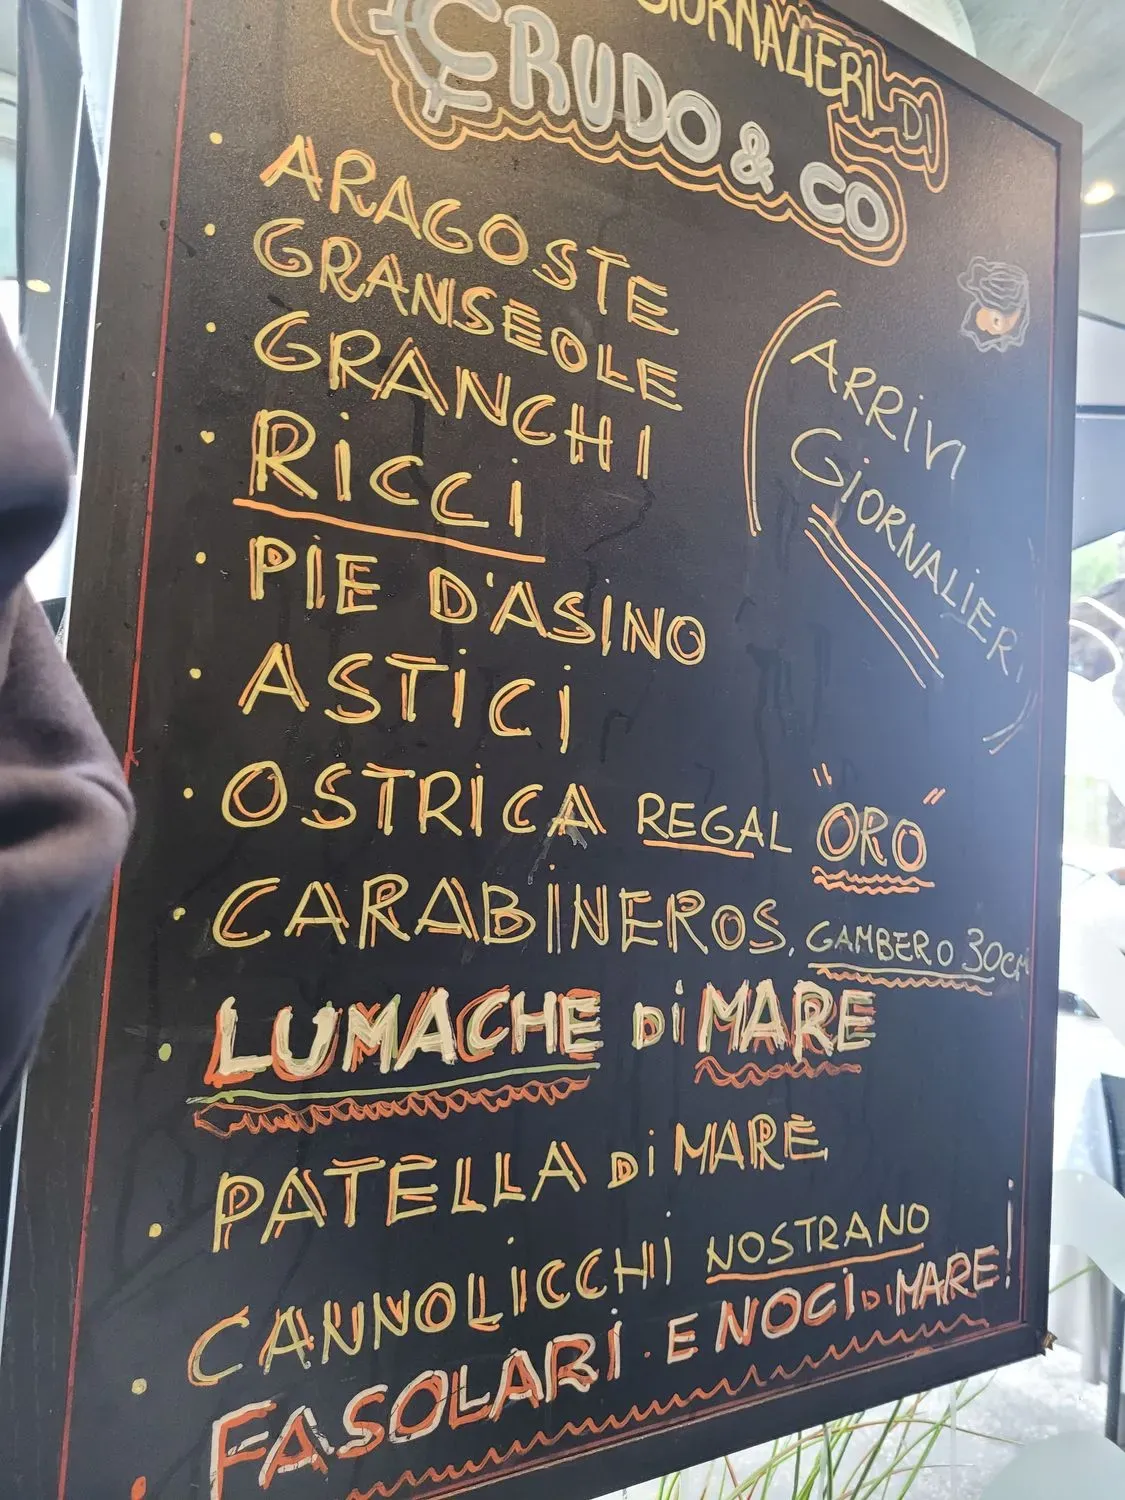 GIORNALIERI DI
CRUDO & CO
• ARAGOSTE
• GRANSEOLE
• GRANCHI
• RICCI
• PIE D'ASINO
• ASTICI
• OSTRICA REGAL "ORO"
• CARABINEROS. GAMBERO 30CM
• LUMACHE Di MARE
• PATELLA Di MARE
• CANNOLICCHI NOSTRANO
• FASOLARI · E NOCI Di MARE!
(ARRIVI
GIORNALIERI)